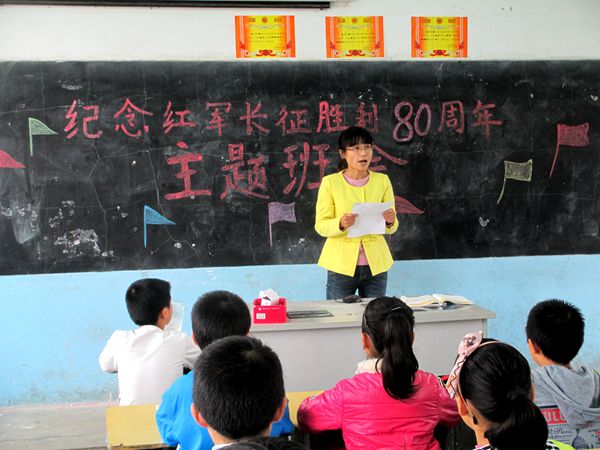 纪念红军长征胜利80周年
主题班会